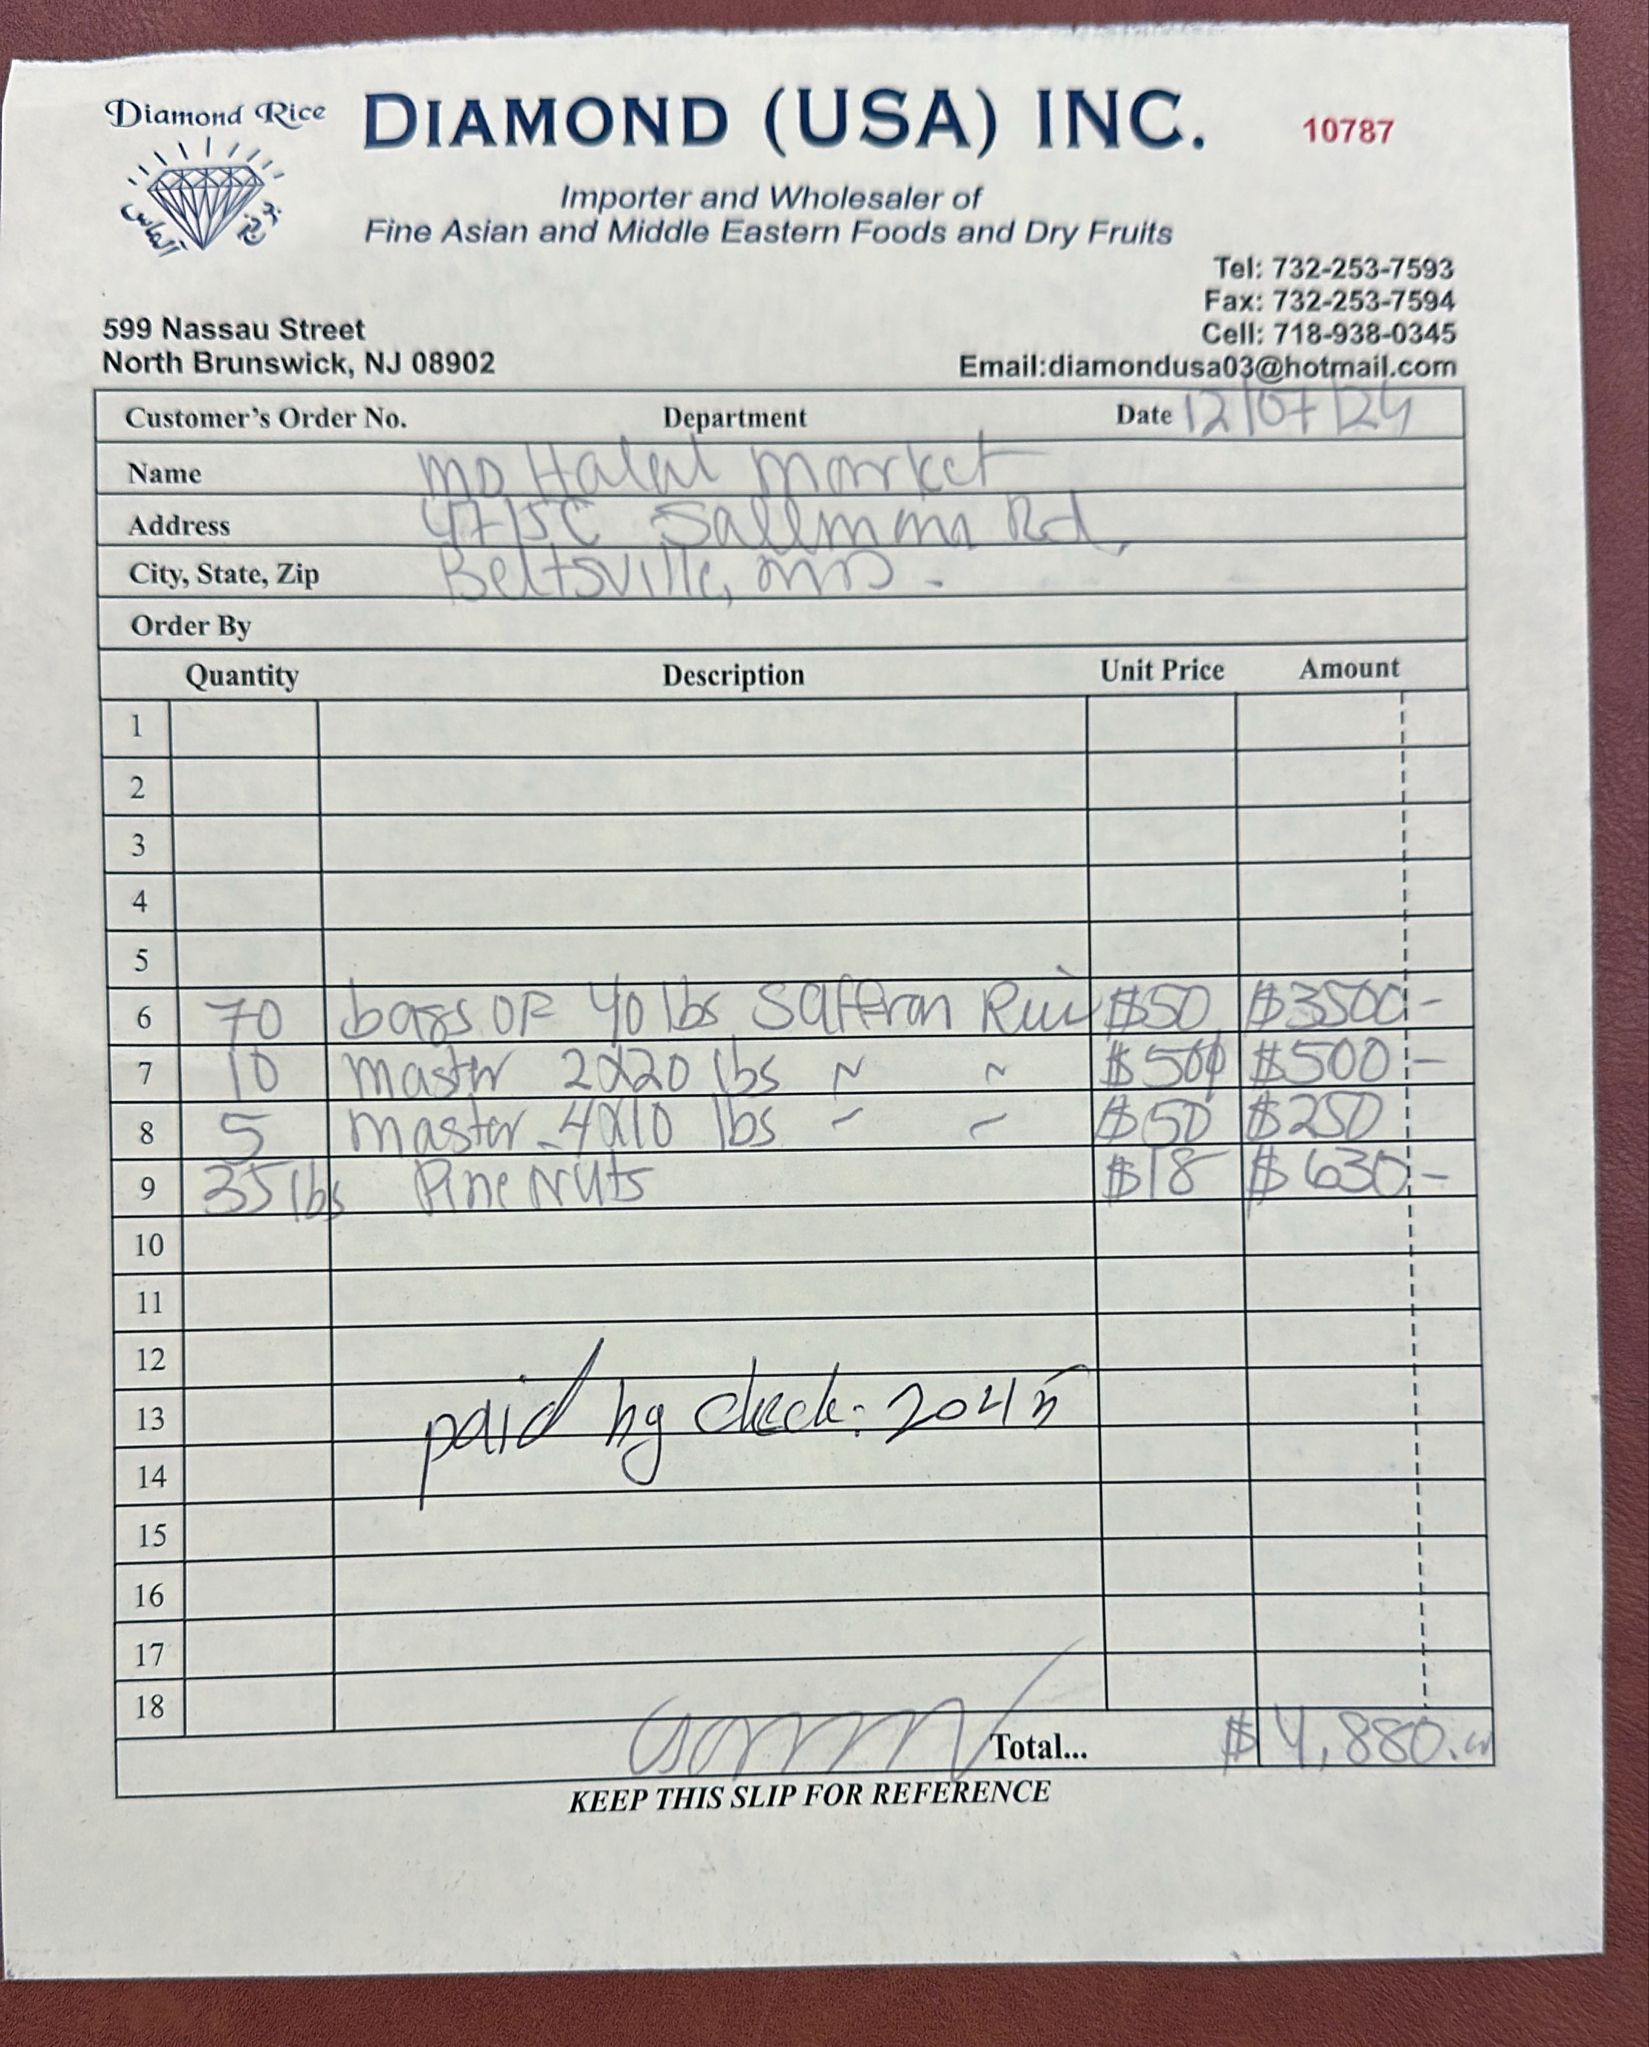 Diamond Rice
DIAMOND (USA) INC.
10787
Importer and Wholesaler of
Fine Asian and Middle Eastern Foods and Dry Fruits
الماس
Tel: 732-253-7593
Fax: 732-253-7594
Cell: 718-938-0345
Email:diamondusa03@hotmail.com
599 Nassau Street
North Brunswick, NJ 08902
Customer's Order No. Department Date 12/07/24
Name MD Halal Market
Address 4715C Rd.
City, State, Zip Beltsville, MD.
Order By
Quantity Description Unit Price Amount
1
2
3
4
5
6 70 bags OF 40 lbs Saffron $50 $3500 -
7 10 master 2x20 lbs ~ ~ $50 $500 -
8 5 master - 4x10 lbs - - $50 $250
9 35 lbs Pine Nuts $18 $630 -
10
11
12
13 paid by check: 2045
14
15
16
17
18
Total... $4,880.00
KEEP THIS SLIP FOR REFERENCE